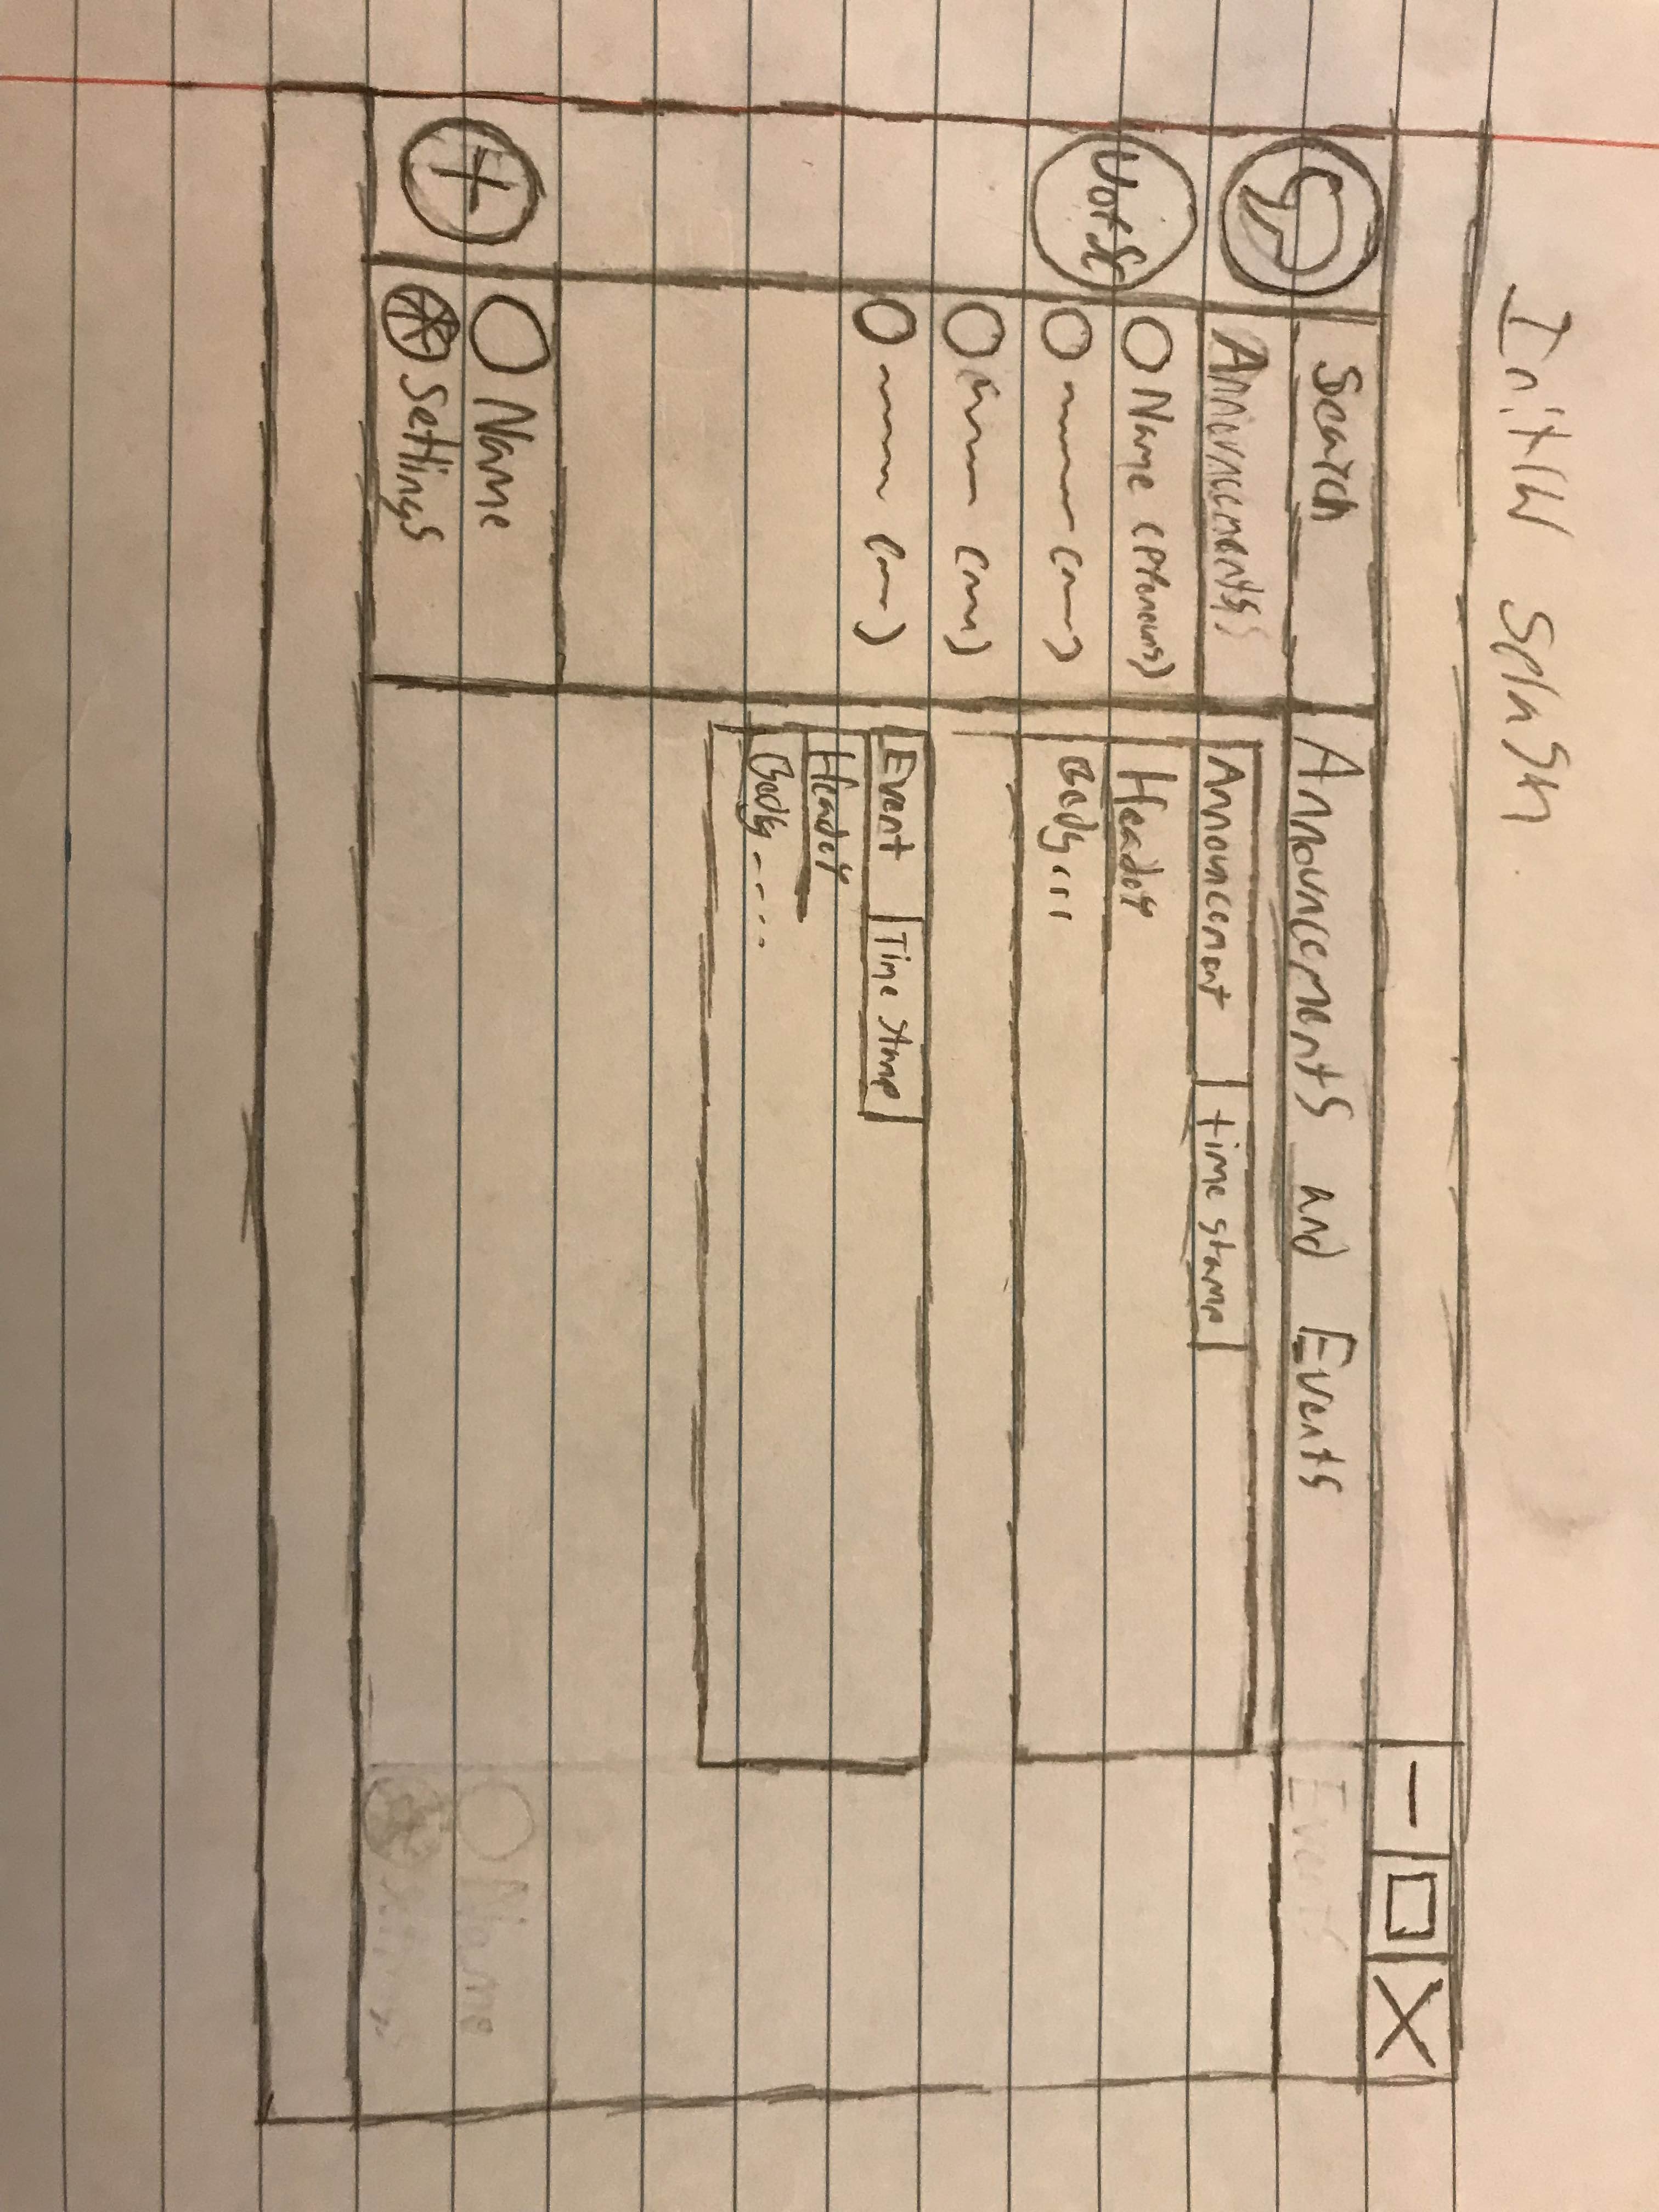 Initial Splash
Search
Announcements
Name (Pronouns)
Name
Settings
U of SC
Announcements and Events
Announcement
time stamp
Header
Body...
Event
Time Stamp
Header
Body.....
Events
Name
Settings